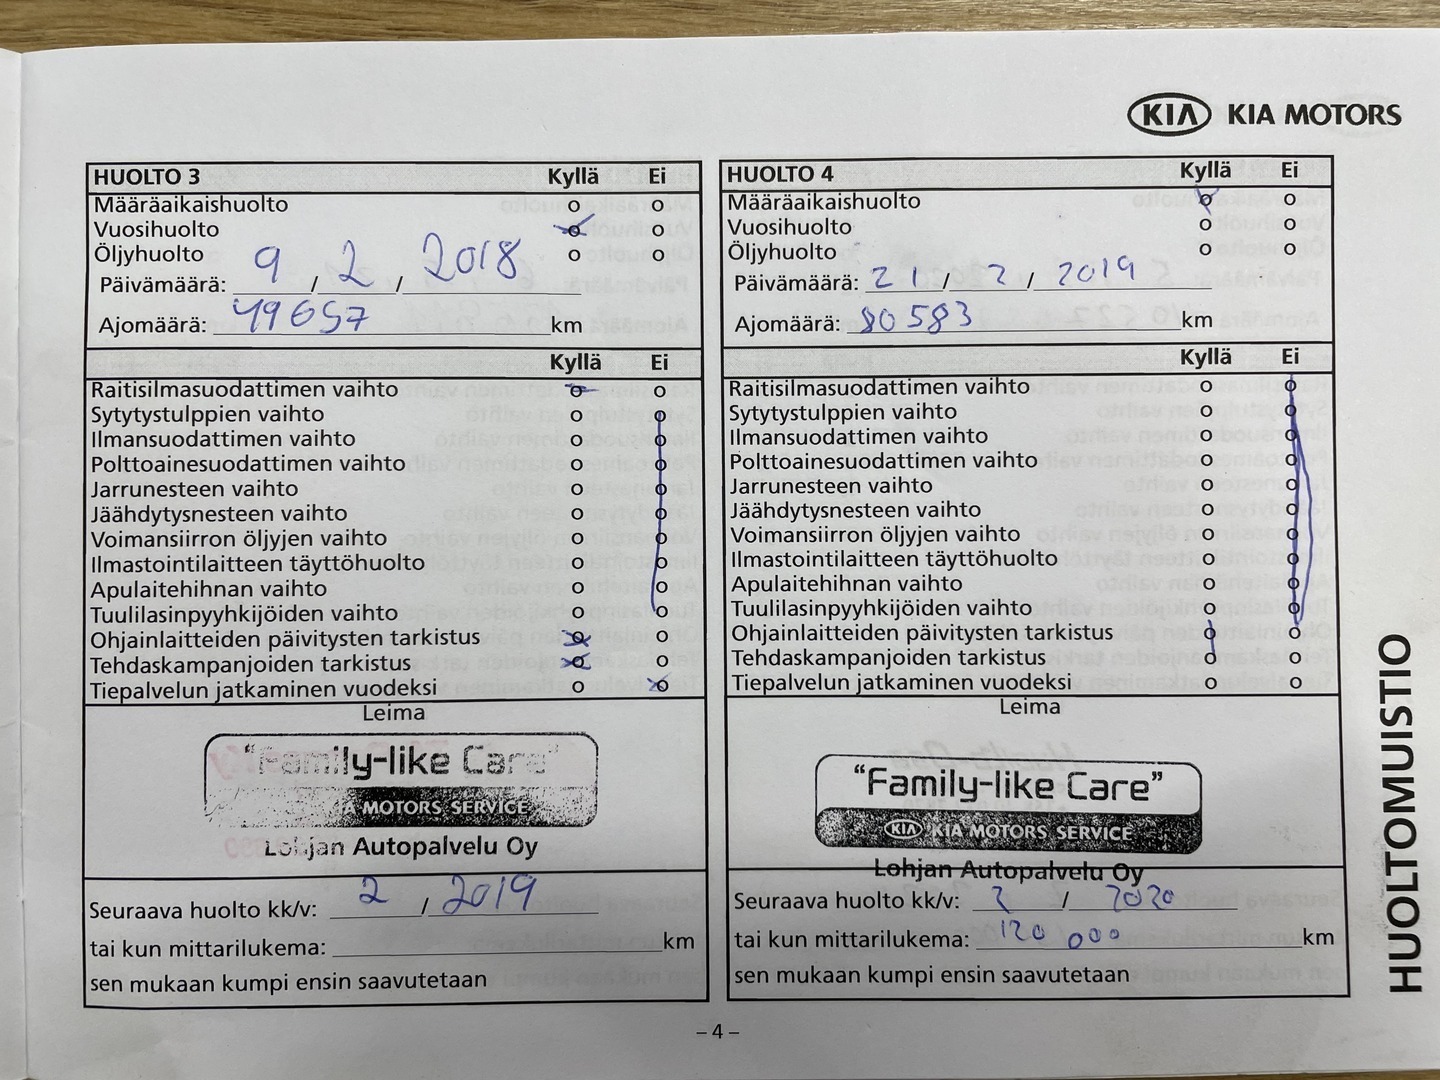 KIA KIA MOTORS
HUOLTO 3 Kyllä Ei
Määräaikaishuolto o o
Vuosihuolto o o
Öljyhuolto o o
Päivämäärä: 9 / 2 / 2018
Ajomäärä: 49657 km
Kyllä Ei
Raitisilmasuodattimen vaihto o o
Sytytystulppien vaihto o o
Ilmansuodattimen vaihto o o
Polttoainesuodattimen vaihto o o
Jarrunesteen vaihto o o
Jäähdytysnesteen vaihto o o
Voimansiirron öljyjen vaihto o o
Ilmastointilaitteen täyttöhuolto o o
Apulaitehihnan vaihto o o
Tuulilasinpyyhkijöiden vaihto o o
Ohjainlaitteiden päivitysten tarkistus o o
Tehdaskampanjoiden tarkistus o o
Tiepalvelun jatkaminen vuodeksi o o
Leima
"Family-like Care"
KIA MOTORS SERVICE
Lohjan Autopalvelu Oy
Seuraava huolto kk/v: 2 / 2019
tai kun mittarilukema: km
sen mukaan kumpi ensin saavutetaan
HUOLTO 4 Kyllä Ei
Määräaikaishuolto o o
Vuosihuolto o o
Öljyhuolto o o
Päivämäärä: 21 / 2 / 2019
Ajomäärä: 80583 km
Kyllä Ei
Raitisilmasuodattimen vaihto o o
Sytytystulppien vaihto o o
Ilmansuodattimen vaihto o o
Polttoainesuodattimen vaihto o o
Jarrunesteen vaihto o o
Jäähdytysnesteen vaihto o o
Voimansiirron öljyjen vaihto o o
Ilmastointilaitteen täyttöhuolto o o
Apulaitehihnan vaihto o o
Tuulilasinpyyhkijöiden vaihto o o
Ohjainlaitteiden päivitysten tarkistus o o
Tehdaskampanjoiden tarkistus o o
Tiepalvelun jatkaminen vuodeksi o o
Leima
"Family-like Care"
KIA KIA MOTORS SERVICE
Lohjan Autopalvelu Oy
Seuraava huolto kk/v: 2 / 2020
tai kun mittarilukema: 120 000 km
sen mukaan kumpi ensin saavutetaan
HUOLTOMUISTIO
– 4 –